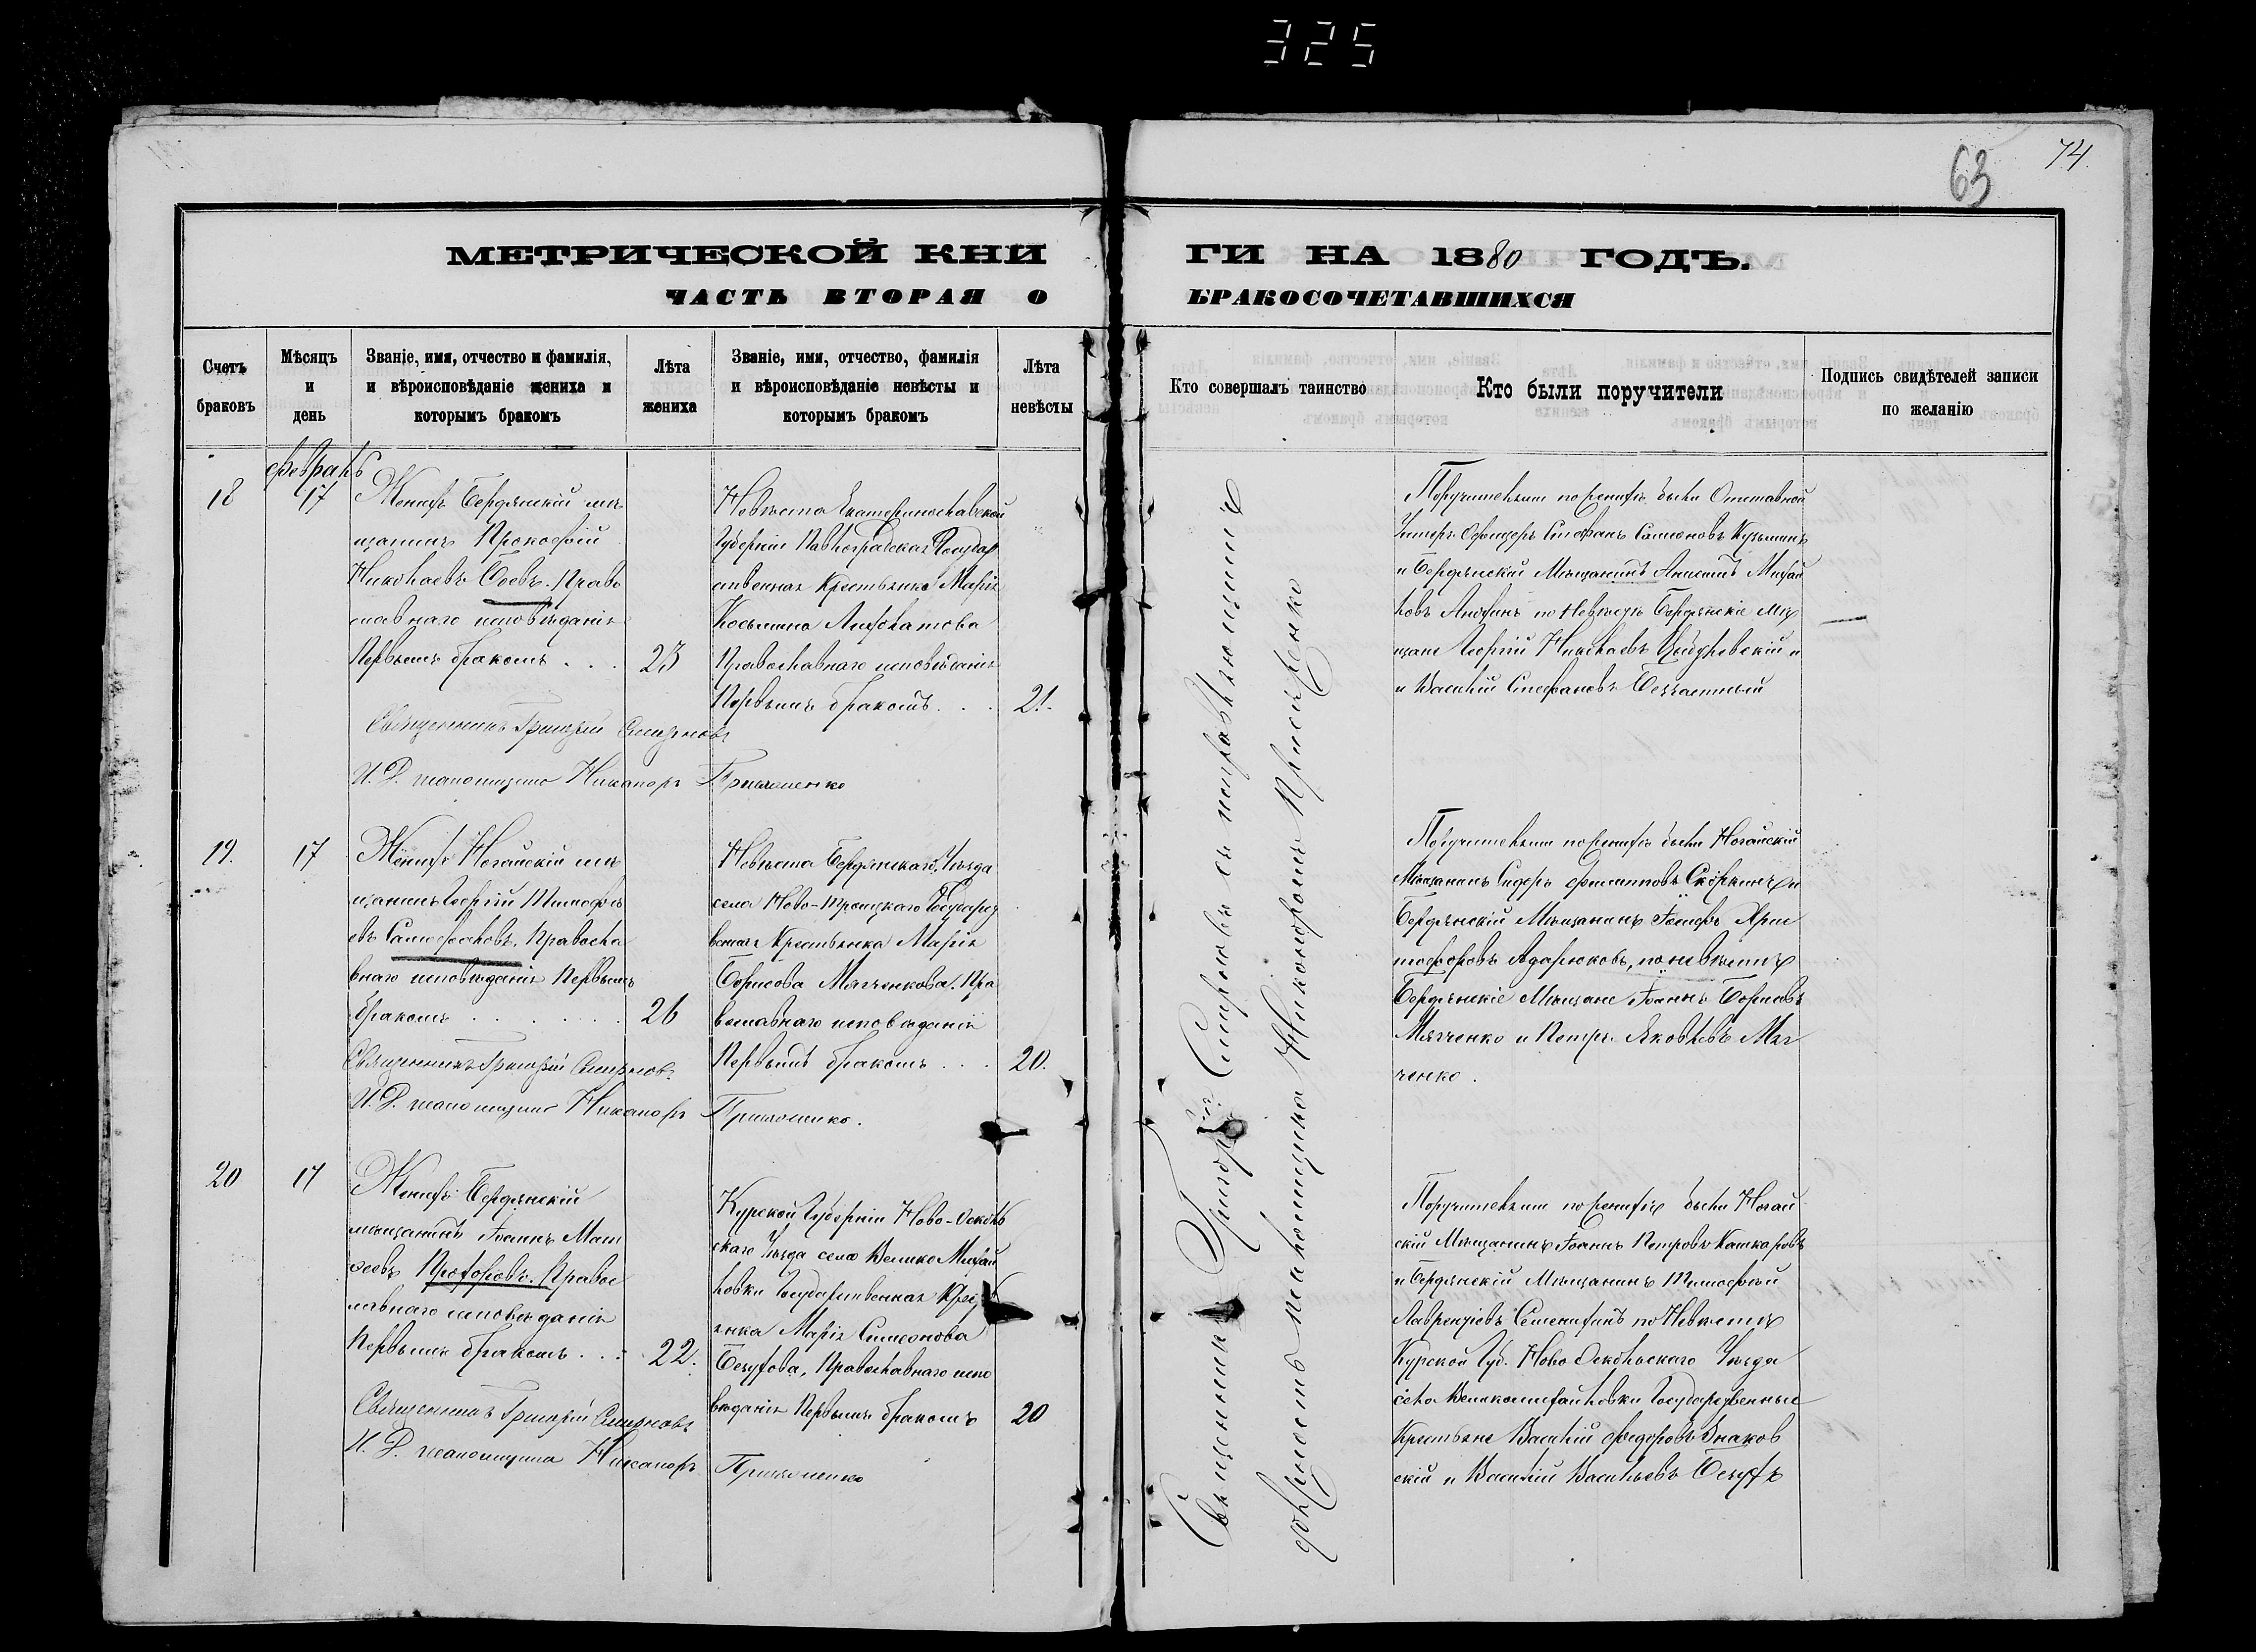 325
63
74.
МЕТРИЧЕСКОЙ КНИ
ГИ НА 1880 ГОДЪ.
ЧАСТЬ ВТОРАЯ О
БРАКОСОЧЕТАВШИХСЯ
Счетъ браковъ
Мѣсяцъ и день
Званіе, имя, отчество и фамилія, и вѣроисповѣданіе жениха и которымъ бракомъ
Лѣта жениха
Званіе, имя, отчество, фамилія и вѣроисповѣданіе невѣсты и которымъ бракомъ
Лѣта невѣсты
Кто совершалъ таинство
Кто были поручители
Подпись свидѣтелей записи по желанію
февраль
18
17
Женихъ Бердянскій мѣ
щанинъ Прокофій
Николаевъ Право
славнаго исповѣданія
Первымъ бракомъ . . .
23
Невѣста Екатеринославской
Губерніи Павлоградская Государ
ственная Крестьянка Марія
Косьмина
Православнаго исповѣданія
Первымъ бракомъ . . .
21.
Священникъ Григорій Смирновъ
И. Д. псаломщика Никаноръ
Поручителями по женихѣ были Отставной
Унтеръ Офицеръ Стефанъ Самсоновъ
и Бердянскій Мѣщанинъ Михай
ловъ по Невѣстѣ Бердянскіе Мѣ
щане Георгій Николаевъ и
и Василій Стефановъ Безчастный
19.
17
Женихъ Ногайскій мѣ
щанинъ Георгій Тимофѣ
евъ Правосла
внаго исповѣданія Первымъ
бракомъ . . . . . .
26
Невѣста Бердянскаго Уѣзда
села Ново-Троицкаго Государст
венная Крестьянка Марія
Борисова Мягченкова. Пра
вославнаго исповѣданія
Первымъ бракомъ . . .
20.
Священникъ Григорій Смирновъ.
И. Д. псаломщика Никаноръ
Поручителями по женихѣ были Ногайскій
Мѣщанинъ Сидоръ Филипповъ и
Бердянскій Мѣщанинъ Хрис
тофоровъ по невѣстѣ
Бердянскіе Мѣщане Іоаннъ Борисовъ
Мягченко и Петръ Яковлевъ Мяг
ченко.
20
17
Женихъ Бердянскій
мѣщанинъ Іоаннъ Мат
ѳеевъ Прохоровъ. Правос
лавнаго исповѣданія
Первымъ бракомъ . . .
22.
Курской Губерніи Ново-Осколь
скаго Уѣзда села Велико Михай
ловки Государственная Крест
янка Марія Симеонова
Православнаго испо
вѣданія Первымъ бракомъ
20
Священникъ Григорій Смирновъ
И. Д. псаломщика Никаноръ
Поручителями по женихѣ были Ногай
скій Мѣщанинъ Іоаннъ Петровъ Кашкаровъ
и Бердянскій Мѣщанинъ Тимофей
Лаврентіевъ по Невѣстѣ
Курской Губ. Ново Оскольскаго Уѣзда
села Великомихайловки Государственные
Крестьяне Василій Федоровъ
скій и Василій Васильевъ
Священникъ Григорій Смирновъ съ исправляющимъ
должность псаломщика